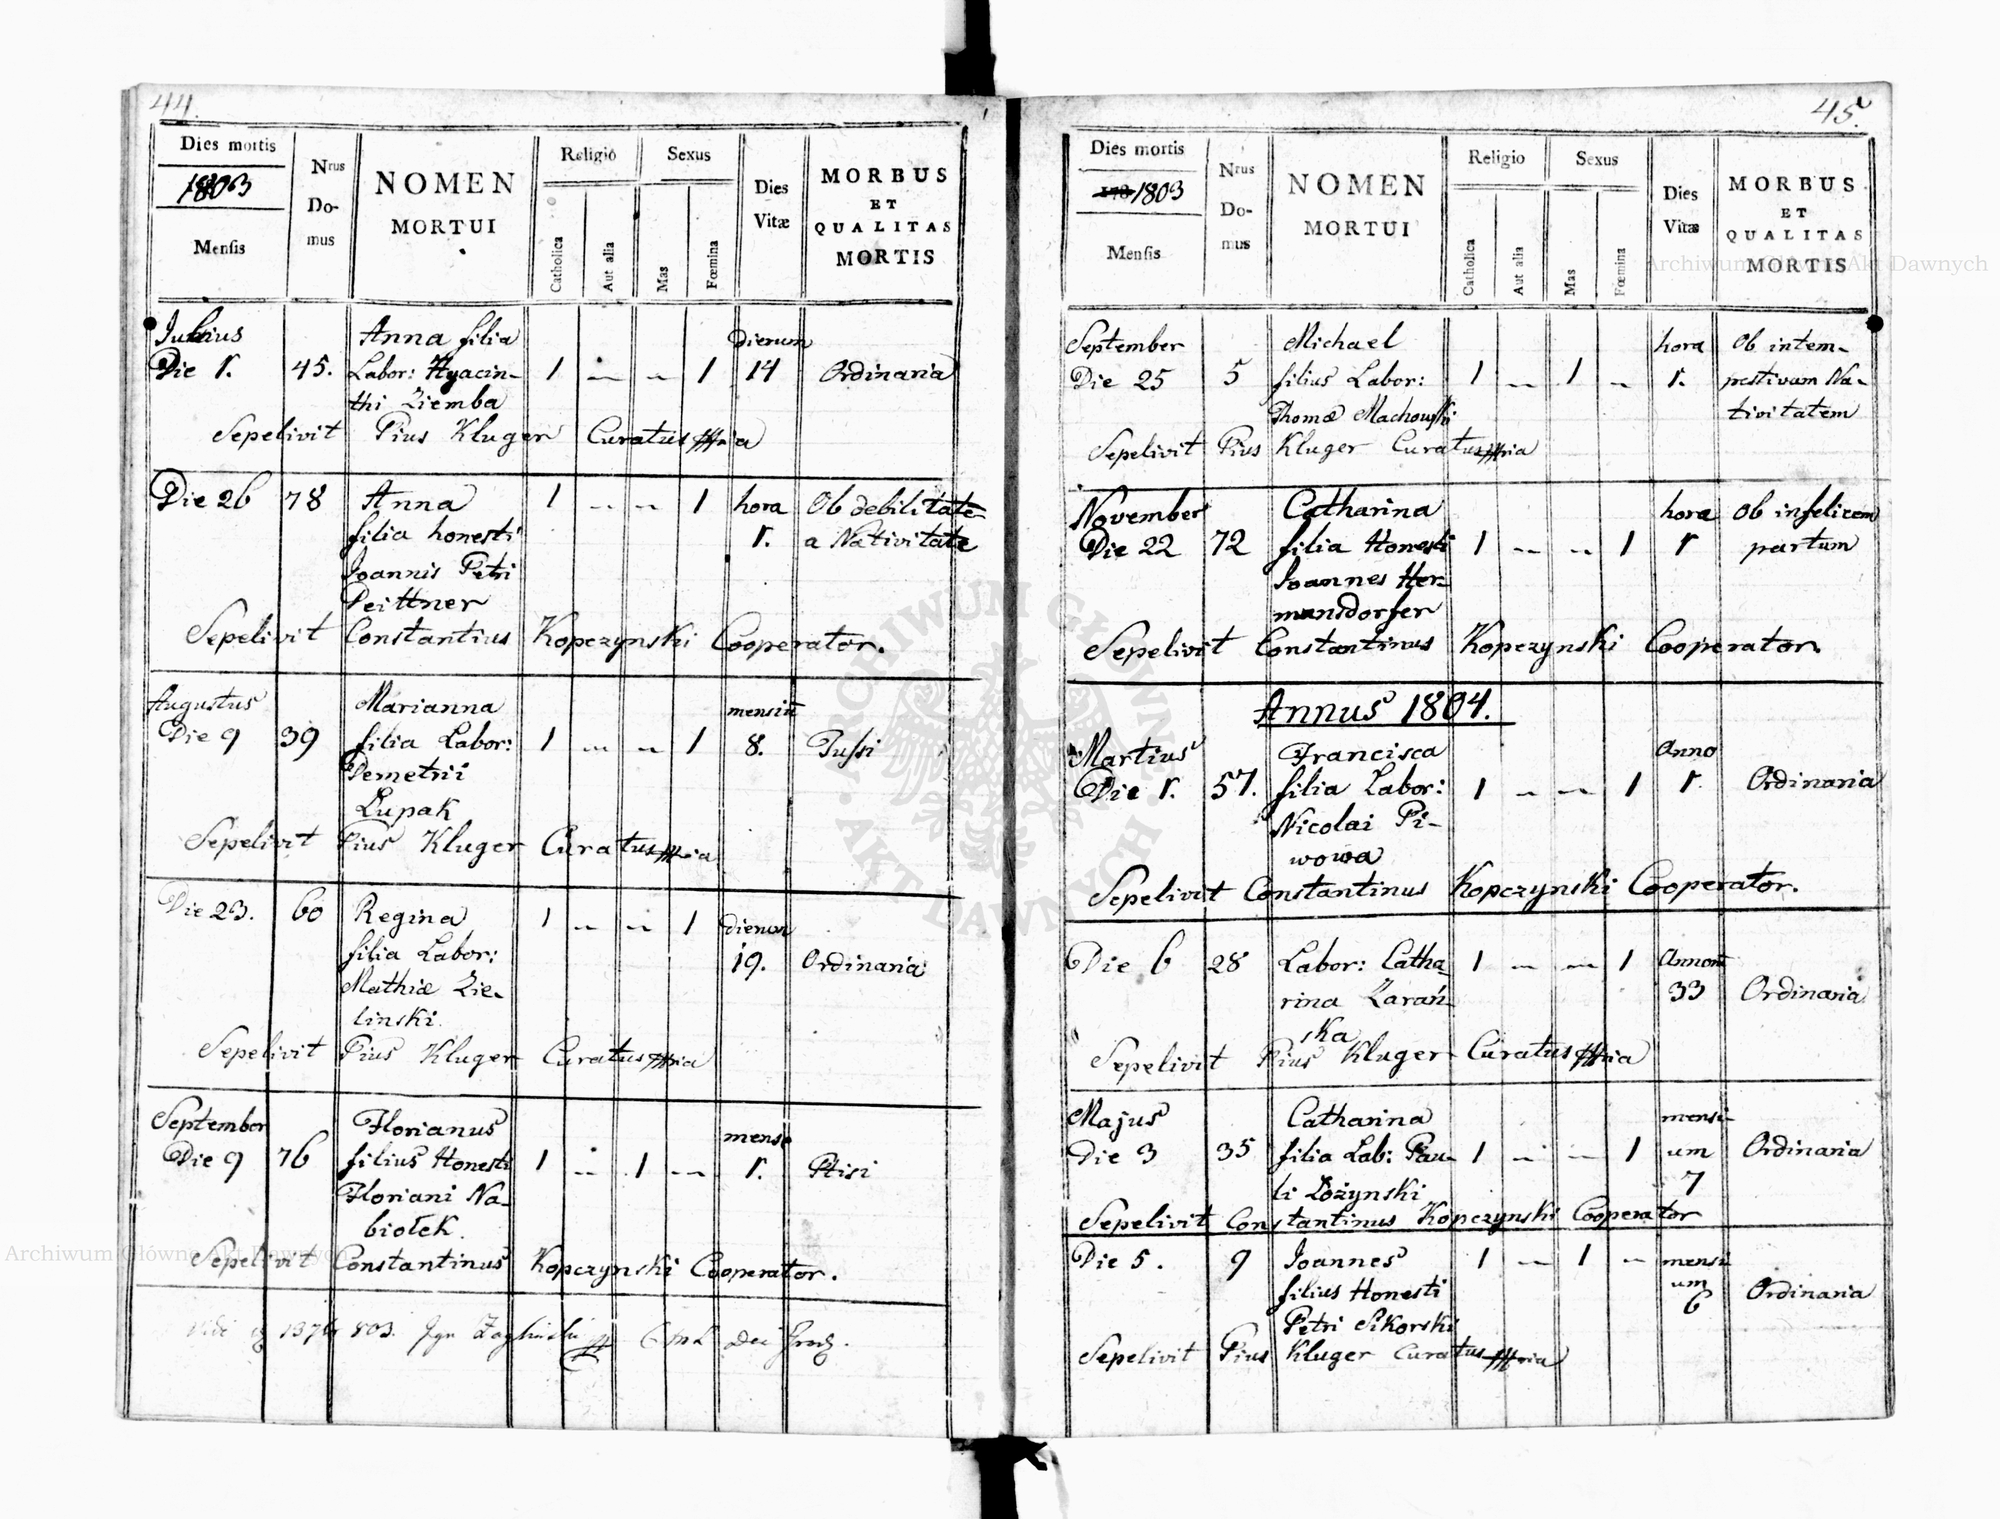 44.
Dies mortis
1803
Mensis
Nrus Domus
NOMEN
MORTUI
Religio
Catholica
Aut alia
Sexus
Mas
Fœmina
Dies
Vitæ
MORBUS
ET
QUALITAS
MORTIS
Julius
Die 1. 45. Anna filia Labor: Hyacin- 1 1 dierum 14 Ordinaria
thi Ziemba
Sepelivit Pius Kluger Curatus
Die 26 78 Anna 1 1 hora Ob debilitate
filia honesti 1. a Nativitate
Joannis Petri
Peittner
Sepelivit Constantius Kopczynski Cooperator.
Augustus Marianna mensiū
Die 9 39 filia Labor: 1 1 8. Tussi
Demetrii
Lupak
Sepelivit Pius Kluger Curatus
Die 23. 60 Regina 1 1 dierum
filia Labor: 19. Ordinaria
Mathiæ Zie-
linski.
Sepelivit Pius Kluger Curatus
September Florianus mense
Die 9 76 filius Honesti 1 1 1. Ptisi
Floriani Na-
biołek.
Sepelivit Constantinus Kopczynski Cooperator.
Vidi 803.
45.
Dies mortis
1803
Mensis
Nrus Domus
NOMEN
MORTUI
Religio
Catholica
Aut alia
Sexus
Mas
Fœmina
Dies
Vitæ
MORBUS
ET
QUALITAS
MORTIS
September Michael hora Ob intem-
Die 25 5 filius Labor: 1 1 1. pestivam Na-
Thomæ Machowski tivitatem
Sepelivit Pius Kluger Curatus
November Catharina hora Ob infelicem
Die 22 72 filia Honesti 1 1 1 partum
Joannes Her-
mansdorfer
Sepelivit Constantinus Kopczynski Cooperator.
Annus 1804.
Martius Francisca Anno
Die 1. 57. filia Labor: 1 1 1. Ordinaria
Nicolai Pi-
wowa
Sepelivit Constantinus Kopczynski Cooperator.
Die 6 28 Labor: Catha- 1 1 Annorū
rina Zarań- 33 Ordinaria
ska
Sepelivit Pius Kluger Curatus
Majus Catharina mensi-
Die 3 35 filia Lab: Pau- 1 1 um Ordinaria
li Łożynski 7
Sepelivit Constantinus Kopczynski Cooperator
Die 5. 9 Joannes 1 1 mensi
filius Honesti um 6 Ordinaria
Petri Sikorski
Sepelivit Pius Kluger Curatus
Archiwum Główne Akt Dawnych
Archiwum Główne Akt Dawnych
ARCHIWUM GŁÓWNE AKT DAWNYCH